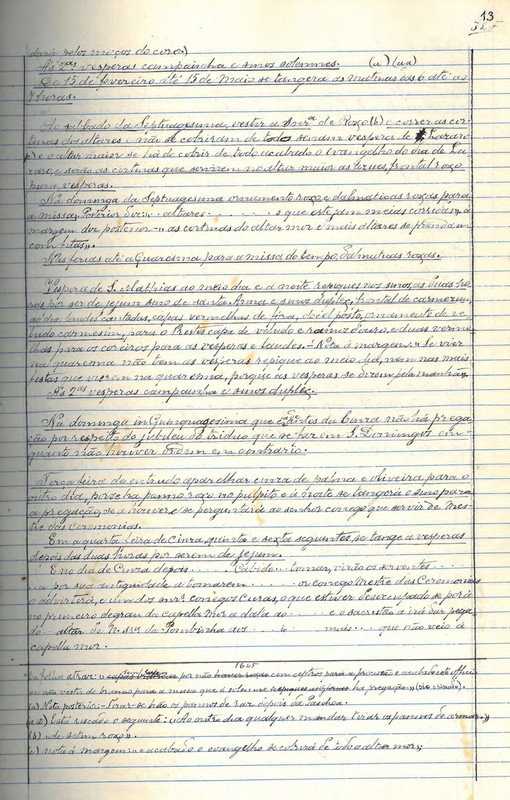 13
darão pelos moços do coro.)
Ás 2as vesperas campainha e sinos solemnes. (a) (aa)
De 15 de fevereiro até 15 de Maio se tangerá as matinas das 6 até as
7 horas.
Ao sabbado da Septuagesima, vestir a Snra de Roxo (b) e correr as cor-
tinas dos altares - não se cobriram de todo senam vespera de Lazaro
e o altar maior se ha de cobrir de todo acabado o evangelho do dia de La-
zaro, e serão as cortinas que servirem no altar maior as azues, frontal roxo
para vesperas.
Na dominga da Septuagesima ornamento roxo e dalmaticas roxas para
a missa. Posterior altares e que estejam meias corridas, á
margem diz posterior as cortinas do altar mor e mais altares se prendam
com fitas».
Nas ferias até a Quaresma para a missa do tempo. Dalmaticas roxas.
Vespera de S. Mathias ao meio dia e á noite repiques nos sinos ás duas ho-
ras por ser de jejum sino de santa Anna e sinos duplex, frontal de carmezim,
ao dia laudes cantadas, capas vermelhas de fóra, docel posto, ornamento de ve-
ludo carmesim, para o Preste capa de veludo e ramos d'ouro, e duas verme-
lhas para os coreiros para as vesperas e laudes. - Nota á margem: - Se vier
na quaresma não tem as vesperas repique ao meio dia, nem nas mais
festas que vierem na quaresma, porque as vesperas se dizem pela manhã».
Ás 2as vesperas campainha e sinos duplex.
Na dominga in Quinquagesima que é antes da Cinza não há prega-
ção por respeito do jubileu do triduo que se faz em S. Domingos em-
quanto não houver ordem em contrario.
Terça feira do entrudo aparelhar cinza de palma e oliveira para o
outro dia, por se ha panno roxo no pulpito e á noite se tangerá o sino para
a pregação, se a houver e se perguntará ao senhor conego que servir de Mes-
tre das Ceremonias.
Em a quarta feira de Cinza, quinta e sexta seguintes, se tange a vesperas
depois das duas horas por serem de jejum.
E no dia de Cinza depois tomar, virão os serventes
por sua antiguidade a tomarem o conego Mestre das Ceremonias
o advertirá, e um dos snrs conegos Curas, o que estiver desoccupado se porá
no primeiro degrau da capella Mór a dala ao e o sacristão a irá dar pega-
do altar de N. Sra da Pombinha aos mais que não veio á
capella mor.
1665
por não haver roxas com ceptros para a procissão e acabado este officio
(a) Nota posterior - Tirar-se hão os pannos de raz depois da Paschoa.
(aa) Está riscado o seguinte: «Ao outro dia qualquer mandar tirar os pannos de armar.»
(b) «de setim roxo».
(c) nota á margem: «e acabado o evangelho se cobrirá de todo o altar mor»;